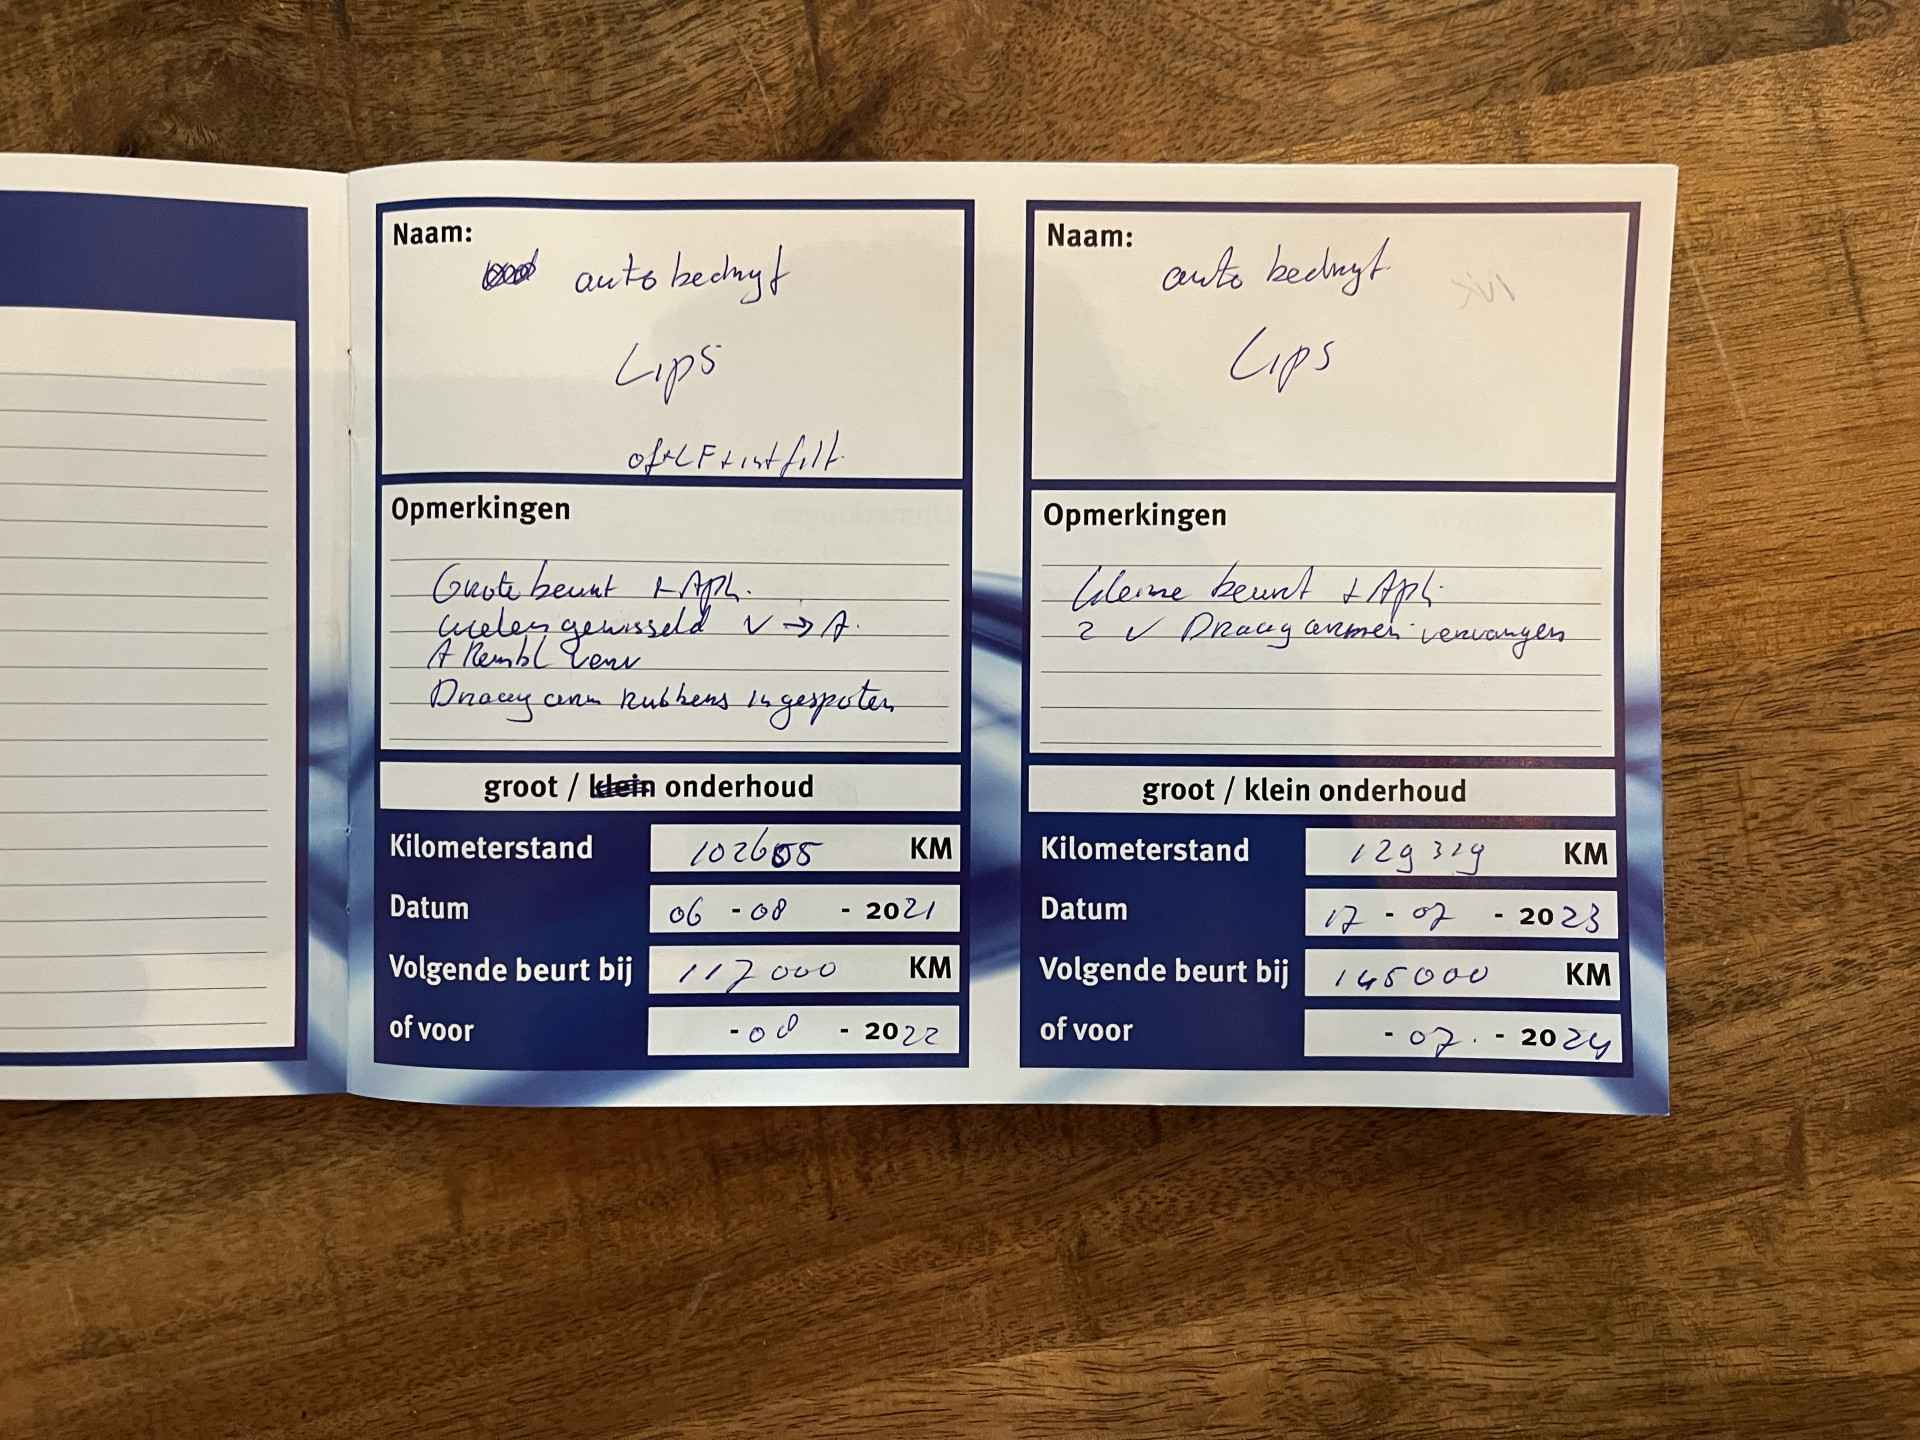 Naam:
autobedryf
Lips
of+LF+intfilt.
Opmerkingen
Grote beurt + Apk.
wielen gewisseld V → A.
A Rembl verv
Draag arm Rubbers ingespoten
groot / klein onderhoud
Kilometerstand 102655 KM
Datum 06 - 08 - 2021
Volgende beurt bij 117000 KM
of voor - 08 - 2022
Naam:
auto bedryf
Lips
Opmerkingen
kleine beurt + Apk.
2 V Draag armen vervangen
groot / klein onderhoud
Kilometerstand 129319 KM
Datum 17 - 07 - 2023
Volgende beurt bij 145000 KM
of voor - 07. - 2024